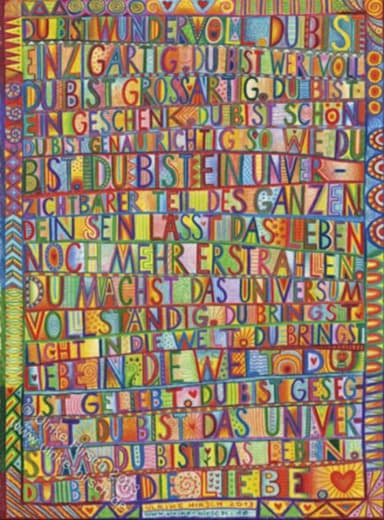 DU BIST WUNDERVOLL. DU BIST
EINZIGARTIG. DU BIST WERTVOLL.
DU BIST GROSSARTIG. DU BIST
EIN GESCHENK. DU BIST SCHÖN.
DU BIST GENAU RICHTIG SO WIE DU
BIST. DU BIST EIN UNVER-
ZICHTBARER TEIL DES GANZEN.
DEIN SEIN LÄSST DAS LEBEN
NOCH MEHR ERSTRAHLEN.
DU MACHST DAS UNIVERSUM
VOLLSTÄNDIG. DU BRINGST
LICHT IN DIE WELT. DU BRINGST
LIEBE IN DIE WELT. DU
BIST GELIEBT. DU BIST GESEG-
NET. DU BIST DAS UNIVER-
SUM. DU BIST DAS LEBEN.
DU BIST DIE LIEBE.
ULRIKE HIRSCH 2013
www.ulrike-hirsch.de